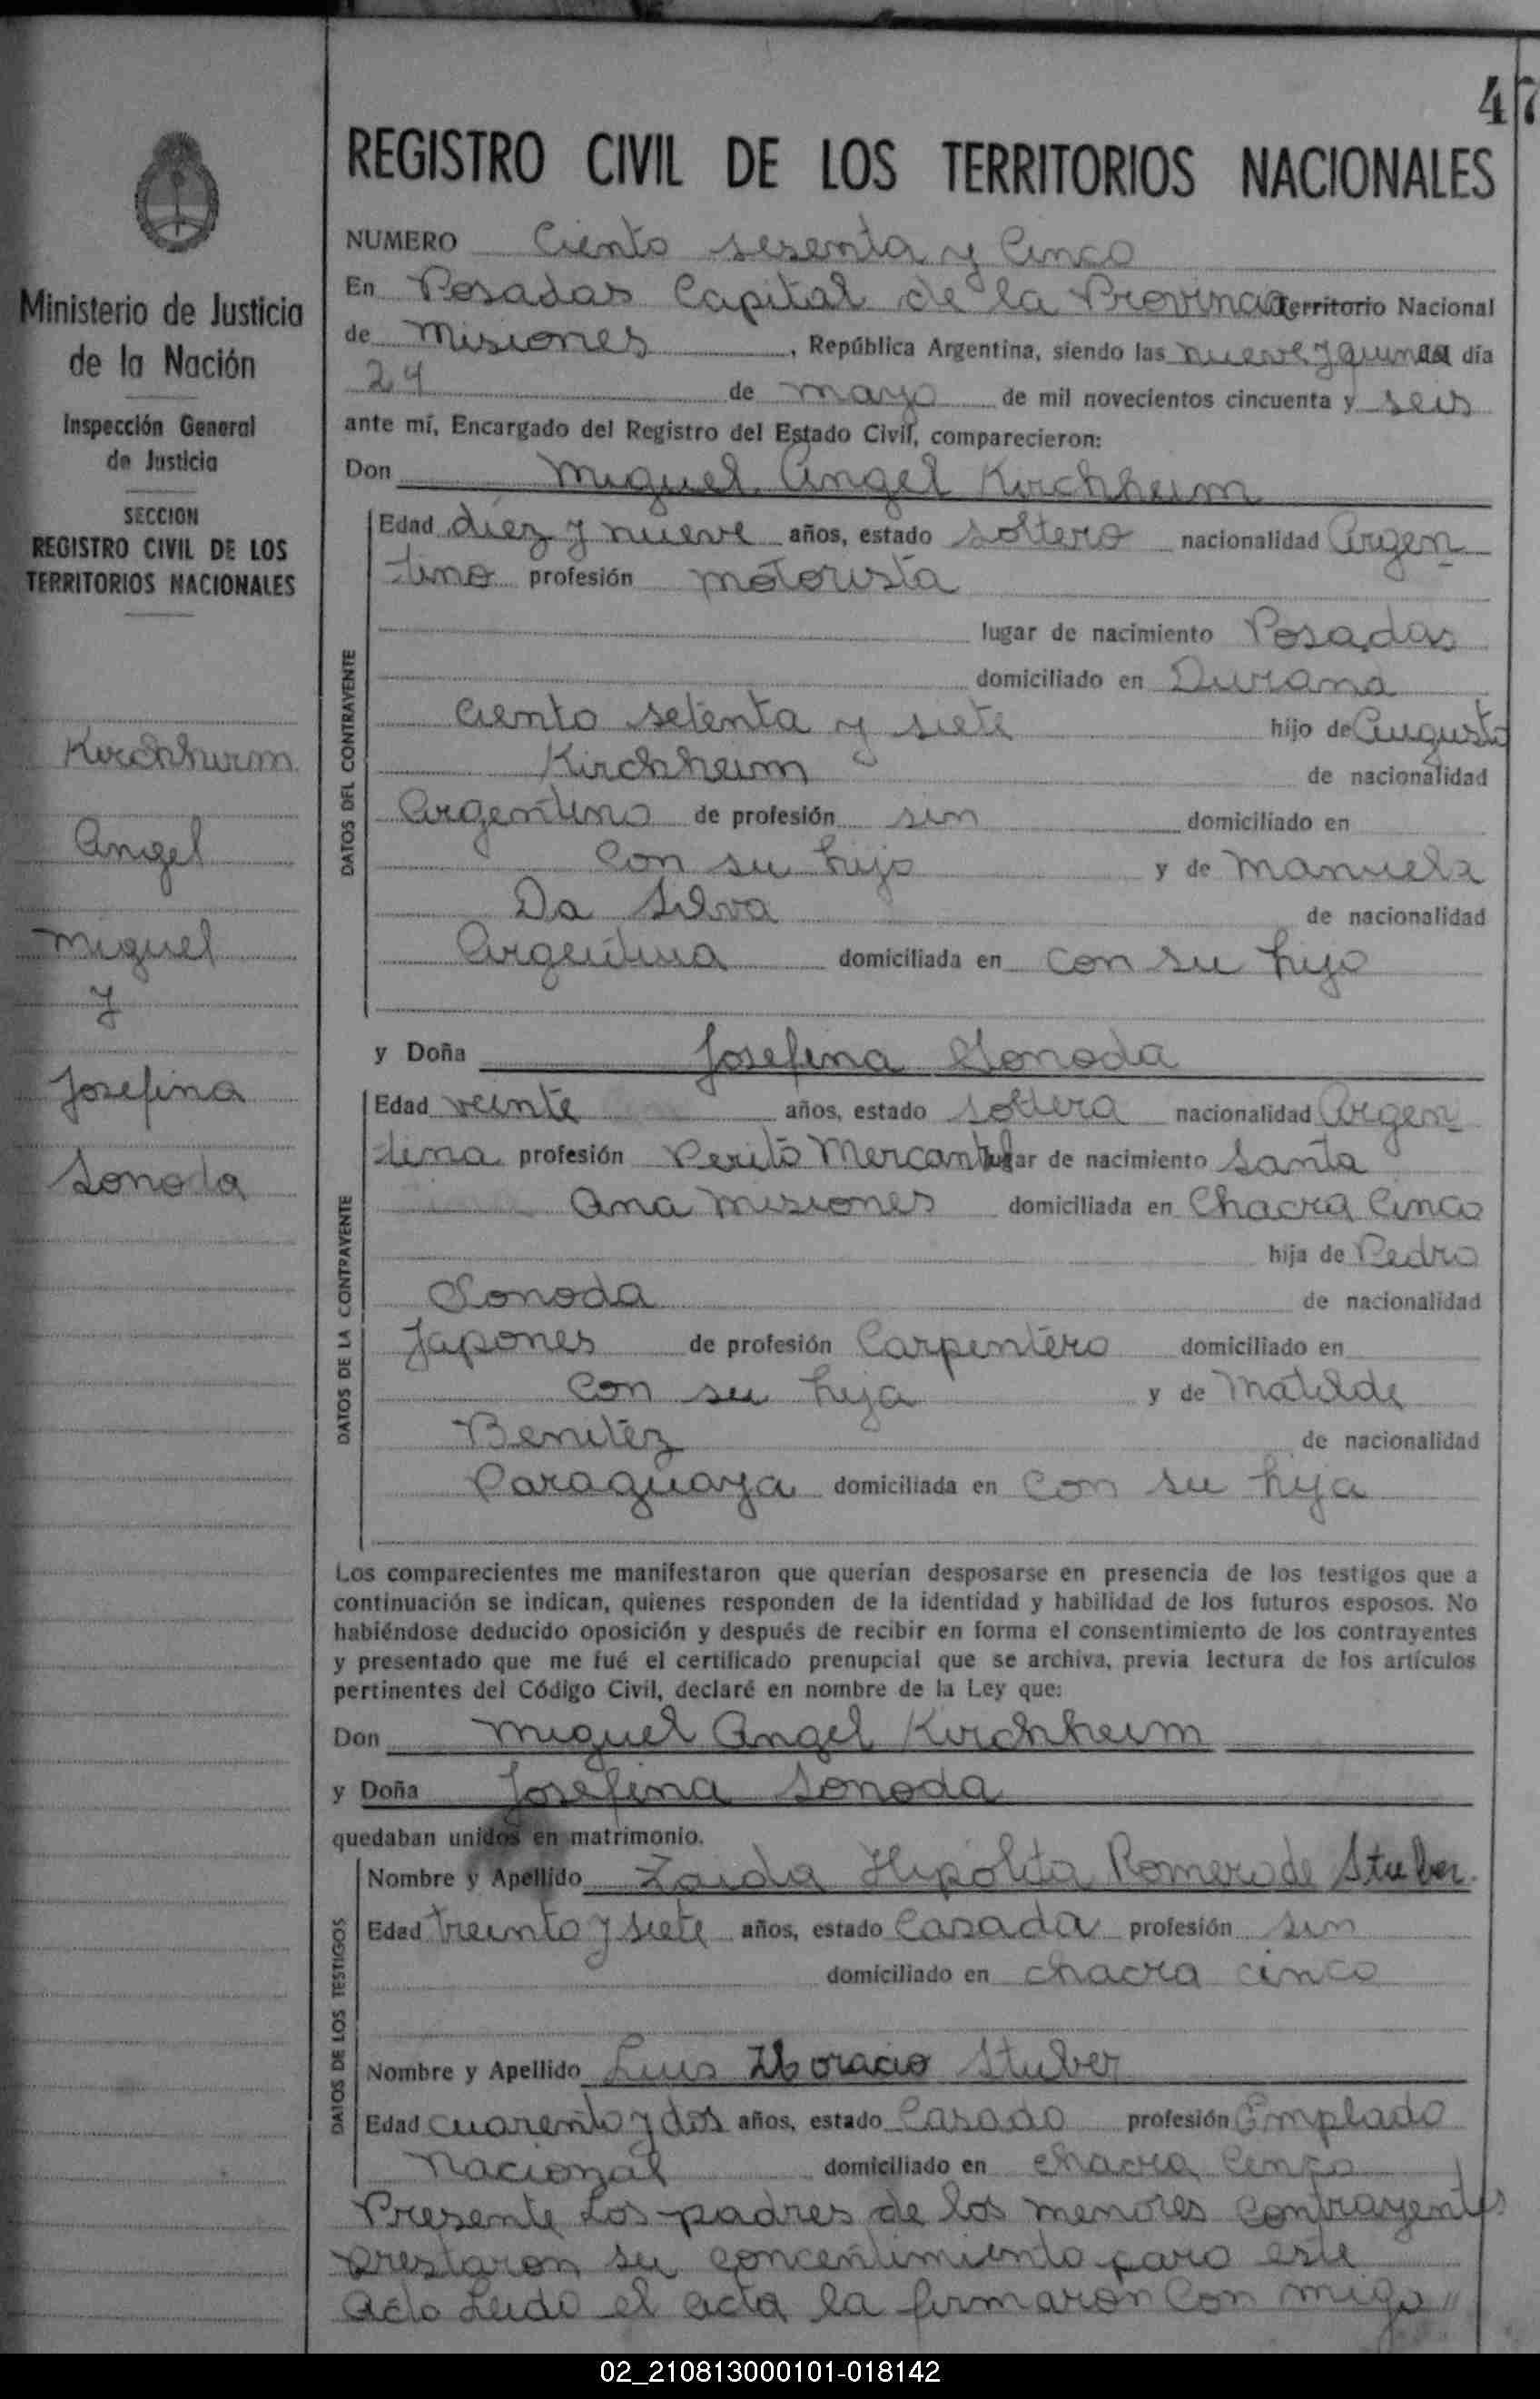 47
REGISTRO CIVIL DE LOS TERRITORIOS NACIONALES
NUMERO Ciento sesenta y Cinco
En Posadas Capital de la Provincia Territorio Nacional
de Misiones, República Argentina, siendo las nueve y quince del día
24 de mayo de mil novecientos cincuenta y seis
ante mí, Encargado del Registro del Estado Civil, comparecieron:
Don Miguel Angel Kirchheim
Edad diez y nueve años, estado soltero nacionalidad Argen
tino profesión motorista
lugar de nacimiento Posadas
domiciliado en Durana
ciento setenta y siete hijo de Augusto
Kirchheim de nacionalidad
Argentino de profesión sin domiciliado en
Con su hijo y de Manuela
Da Silva de nacionalidad
Argentina domiciliada en con su hijo
y Doña Josefina Sonoda
Edad veinte años, estado soltera nacionalidad Argen
tina profesión Perito Mercantil lugar de nacimiento Santa
Ana Misiones domiciliada en Chacra Cinco
hija de Pedro
Sonoda de nacionalidad
Japones de profesión Carpintero domiciliado en
Con su hija y de Matilde
Benitez de nacionalidad
Paraguaya domiciliada en con su hija
Los comparecientes me manifestaron que querían desposarse en presencia de los testigos que a
continuación se indican, quienes responden de la identidad y habilidad de los futuros esposos. No
habiéndose deducido oposición y después de recibir en forma el consentimiento de los contrayentes
y presentado que me fué el certificado prenupcial que se archiva, previa lectura de los artículos
pertinentes del Código Civil, declaré en nombre de la Ley que:
Don Miguel Angel Kirchheim
y Doña Josefina Sonoda
quedaban unidos en matrimonio.
Nombre y Apellido Zaida Hipólita Romero de Stuber.
Edad treinta y siete años, estado Casada profesión sin
domiciliado en chacra cinco
Nombre y Apellido Luis Horacio Stuber
Edad cuarenta y dos años, estado Casado profesión Emplado
Nacional domiciliado en chacra Cinco
Presente Los padres de los menores contrayentes
prestaron su concentimiento para este
acto Leido el acta la firmaron Con migo
DATOS DEL CONTRAYENTE
DATOS DE LA CONTRAYENTE
DATOS DE LOS TESTIGOS
Ministerio de Justicia
de la Nación
Inspección General
de Justicia
SECCION
REGISTRO CIVIL DE LOS
TERRITORIOS NACIONALES
Kirchheim
Angel
Miguel
y
Josefina
Sonoda
02_210813000101-018142